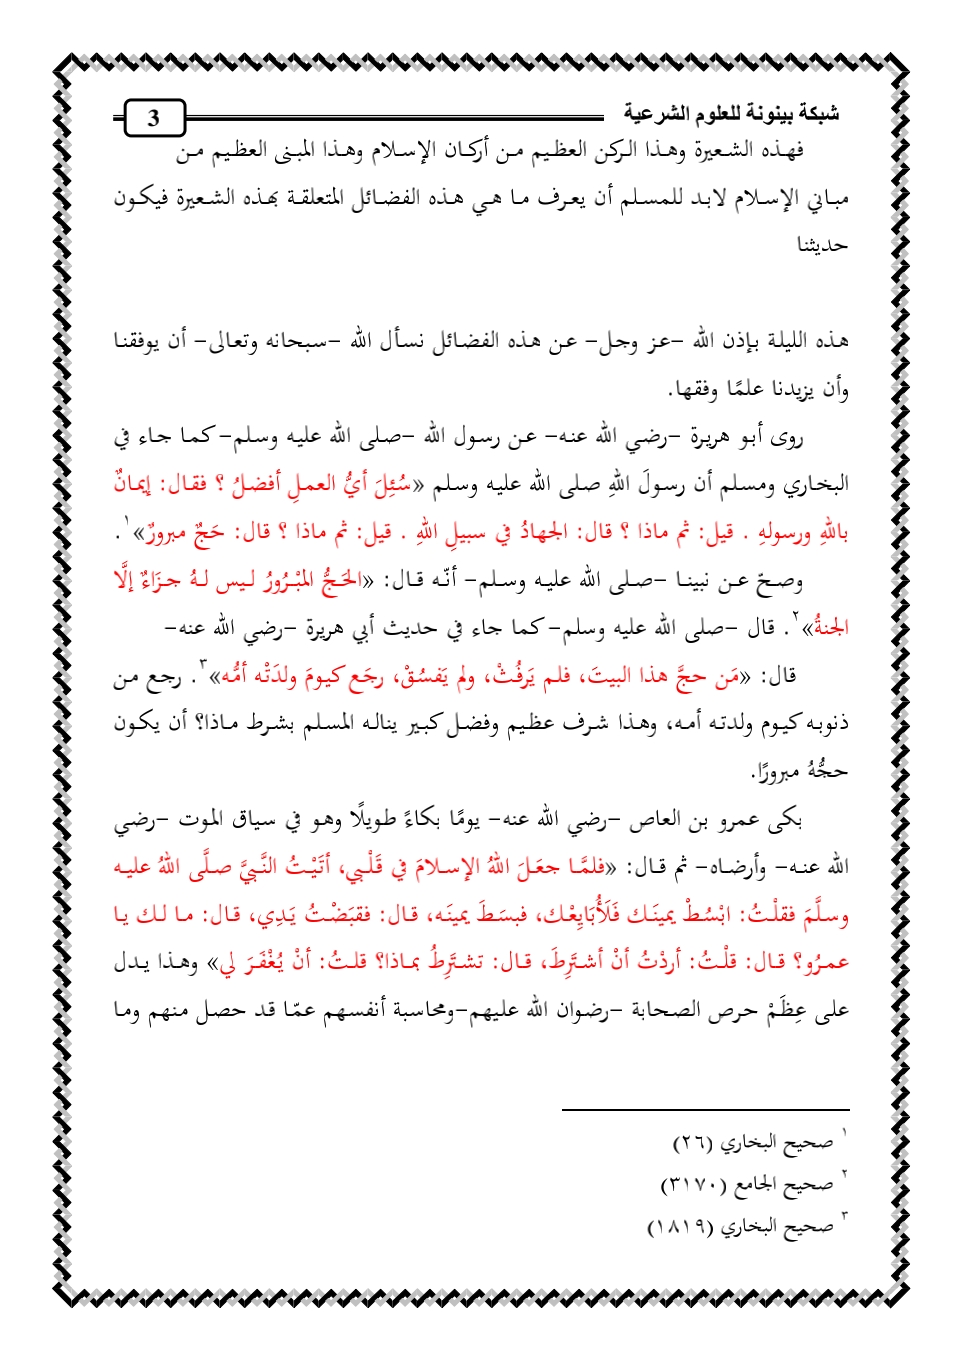 شبكة بينونة للعلوم الشرعية
3
فهذه الشعيرة وهذا الركن العظيم من أركان الإسلام وهذا المبنى العظيم من
مباني الإسلام لابد للمسلم أن يعرف ما هي هذه الفضائل المتعلقة بهذه الشعيرة فيكون
حديثنا
هذه الليلة بإذن الله –عز وجل– عن هذه الفضائل نسأل الله –سبحانه وتعالى– أن يوفقنا
وأن يزيدنا علمًا وفقها.
روى أبو هريرة –رضي الله عنه– عن رسول الله –صلى الله عليه وسلم– كما جاء في
البخاري ومسلم أن رسولَ اللهِ صلى الله عليه وسلم «سُئِلَ أيُّ العملِ أفضلُ ؟ فقال: إيمانٌ
باللهِ ورسولهِ . قيل: ثم ماذا ؟ قال: الجهادُ في سبيلِ اللهِ . قيل: ثم ماذا ؟ قال: حَجٌ مبرورٌ»١ .
وصحّ عن نبينا –صلى الله عليه وسلم– أنّه قال: «الحَجُّ المبْرُورُ ليس لهُ جزَاءٌ إلَّا
الجنةُ»٢. قال –صلى الله عليه وسلم– كما جاء في حديث أبي هريرة –رضي الله عنه–
قال: «مَن حجَّ هذا البيتَ، فلم يَرفُثْ، ولم يَفسُقْ، رجَع كيومَ ولدَتْه أمُّه»٣. رجع من
ذنوبه كيوم ولدته أمه، وهذا شرف عظيم وفضل كبير يناله المسلم بشرط ماذا؟ أن يكون
حجُّهُ مبرورًا.
بكى عمرو بن العاص –رضي الله عنه– يومًا بكاءً طويلًا وهو في سياق الموت –رضي
الله عنه– وأرضاه– ثم قال: «فلمَّا جعَلَ اللهُ الإسلامَ في قَلْبي، أتَيْتُ النَّبيَّ صلَّى اللهُ عليه
وسلَّمَ فقلْتُ: ابْسُطْ يمينَك فَلَأُبَايِعْك، فبسَطَ يمينَه، قال: فقبَضْتُ يَدِي، قال: ما لك يا
عمرُو؟ قال: قلْتُ: أردْتُ أنْ أشتَرِطَ، قال: تشتَرِطُ بماذا؟ قلتُ: أنْ يُغْفَرَ لي» وهذا يدل
على عِظَمْ حرص الصحابة –رضوان الله عليهم–ومحاسبة أنفسهم عمّا قد حصل منهم وما
١ صحيح البخاري (٢٦)
٢ صحيح الجامع (٣١٧٠)
٣ صحيح البخاري (١٨١٩)